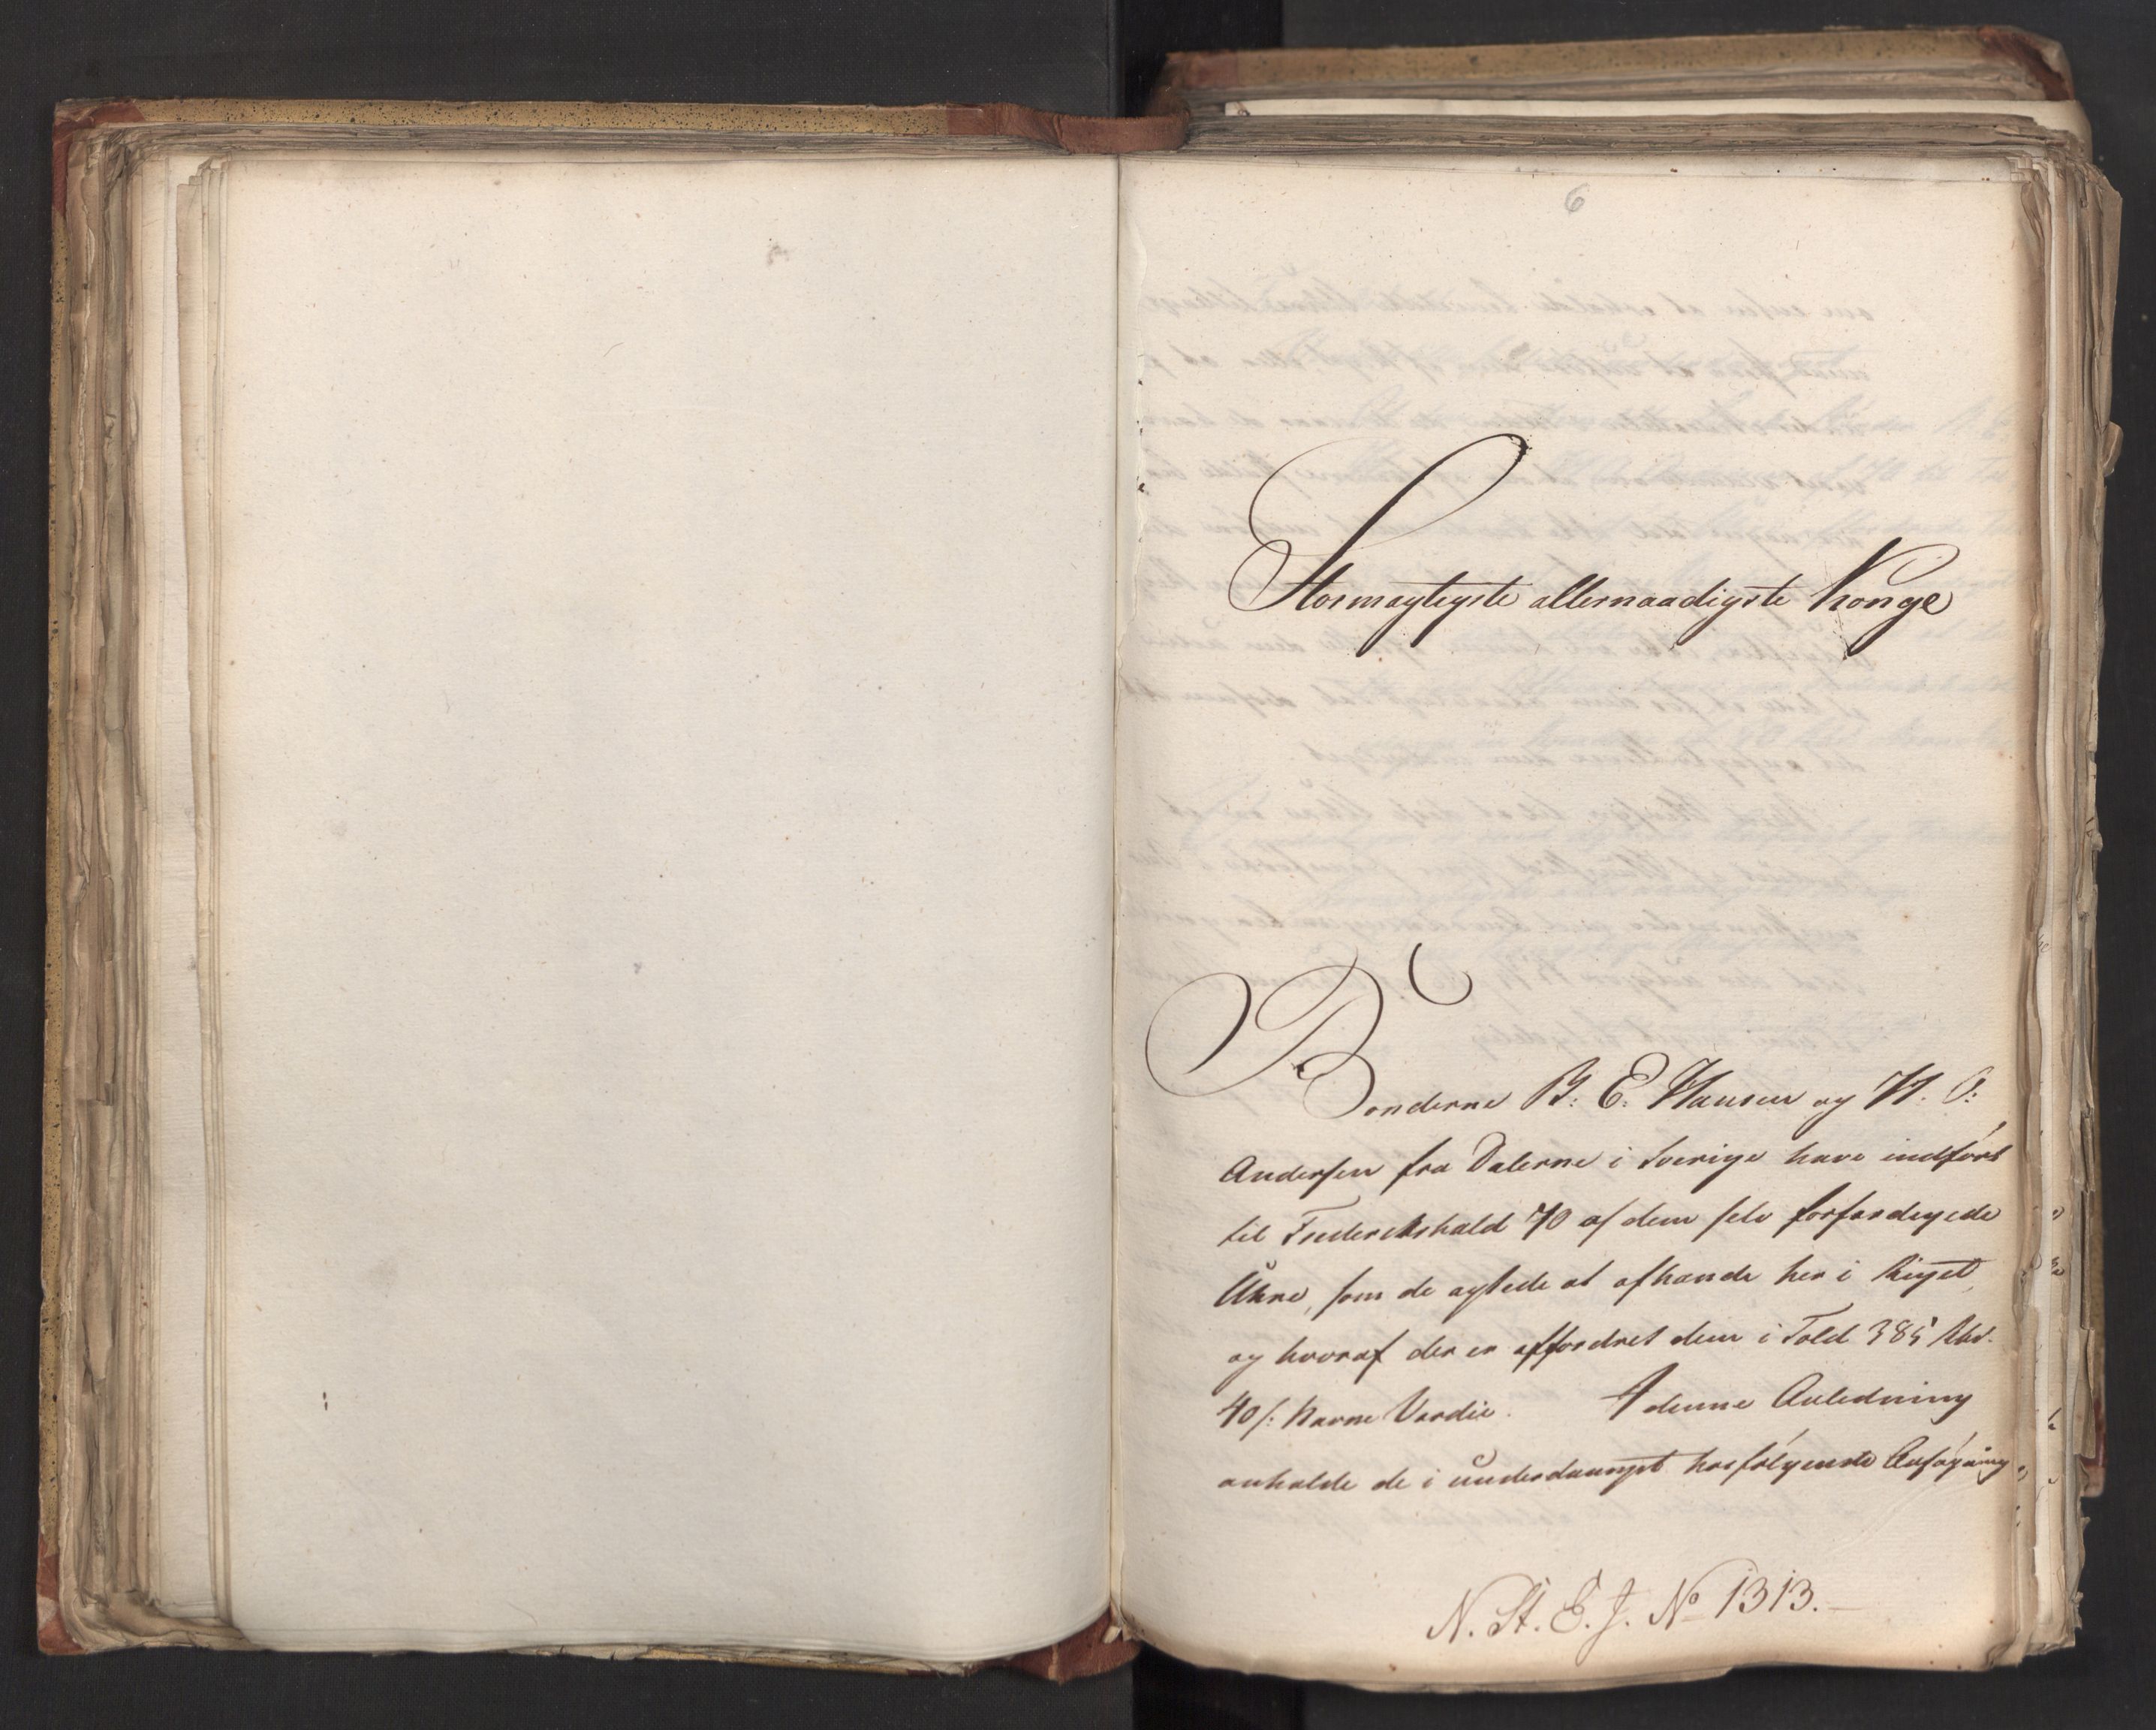 6
Stormægtigste allernaadigste Konge
Bønderne B: E: Hansen og H. O:
Andersen fra Dalerne i Sverige have indført
til Frederikshald 70 af dem selv forfærdigede
Uhre, som de agtede at afhænde her i Riget,
og hvoraf der er affordret dem i Told 385 Rbd.
40 s: Navne Værdie. I denne Anledning
anholde de i underdanigst hosfølgende Ansøgning
N. St. E. J. No 1313.